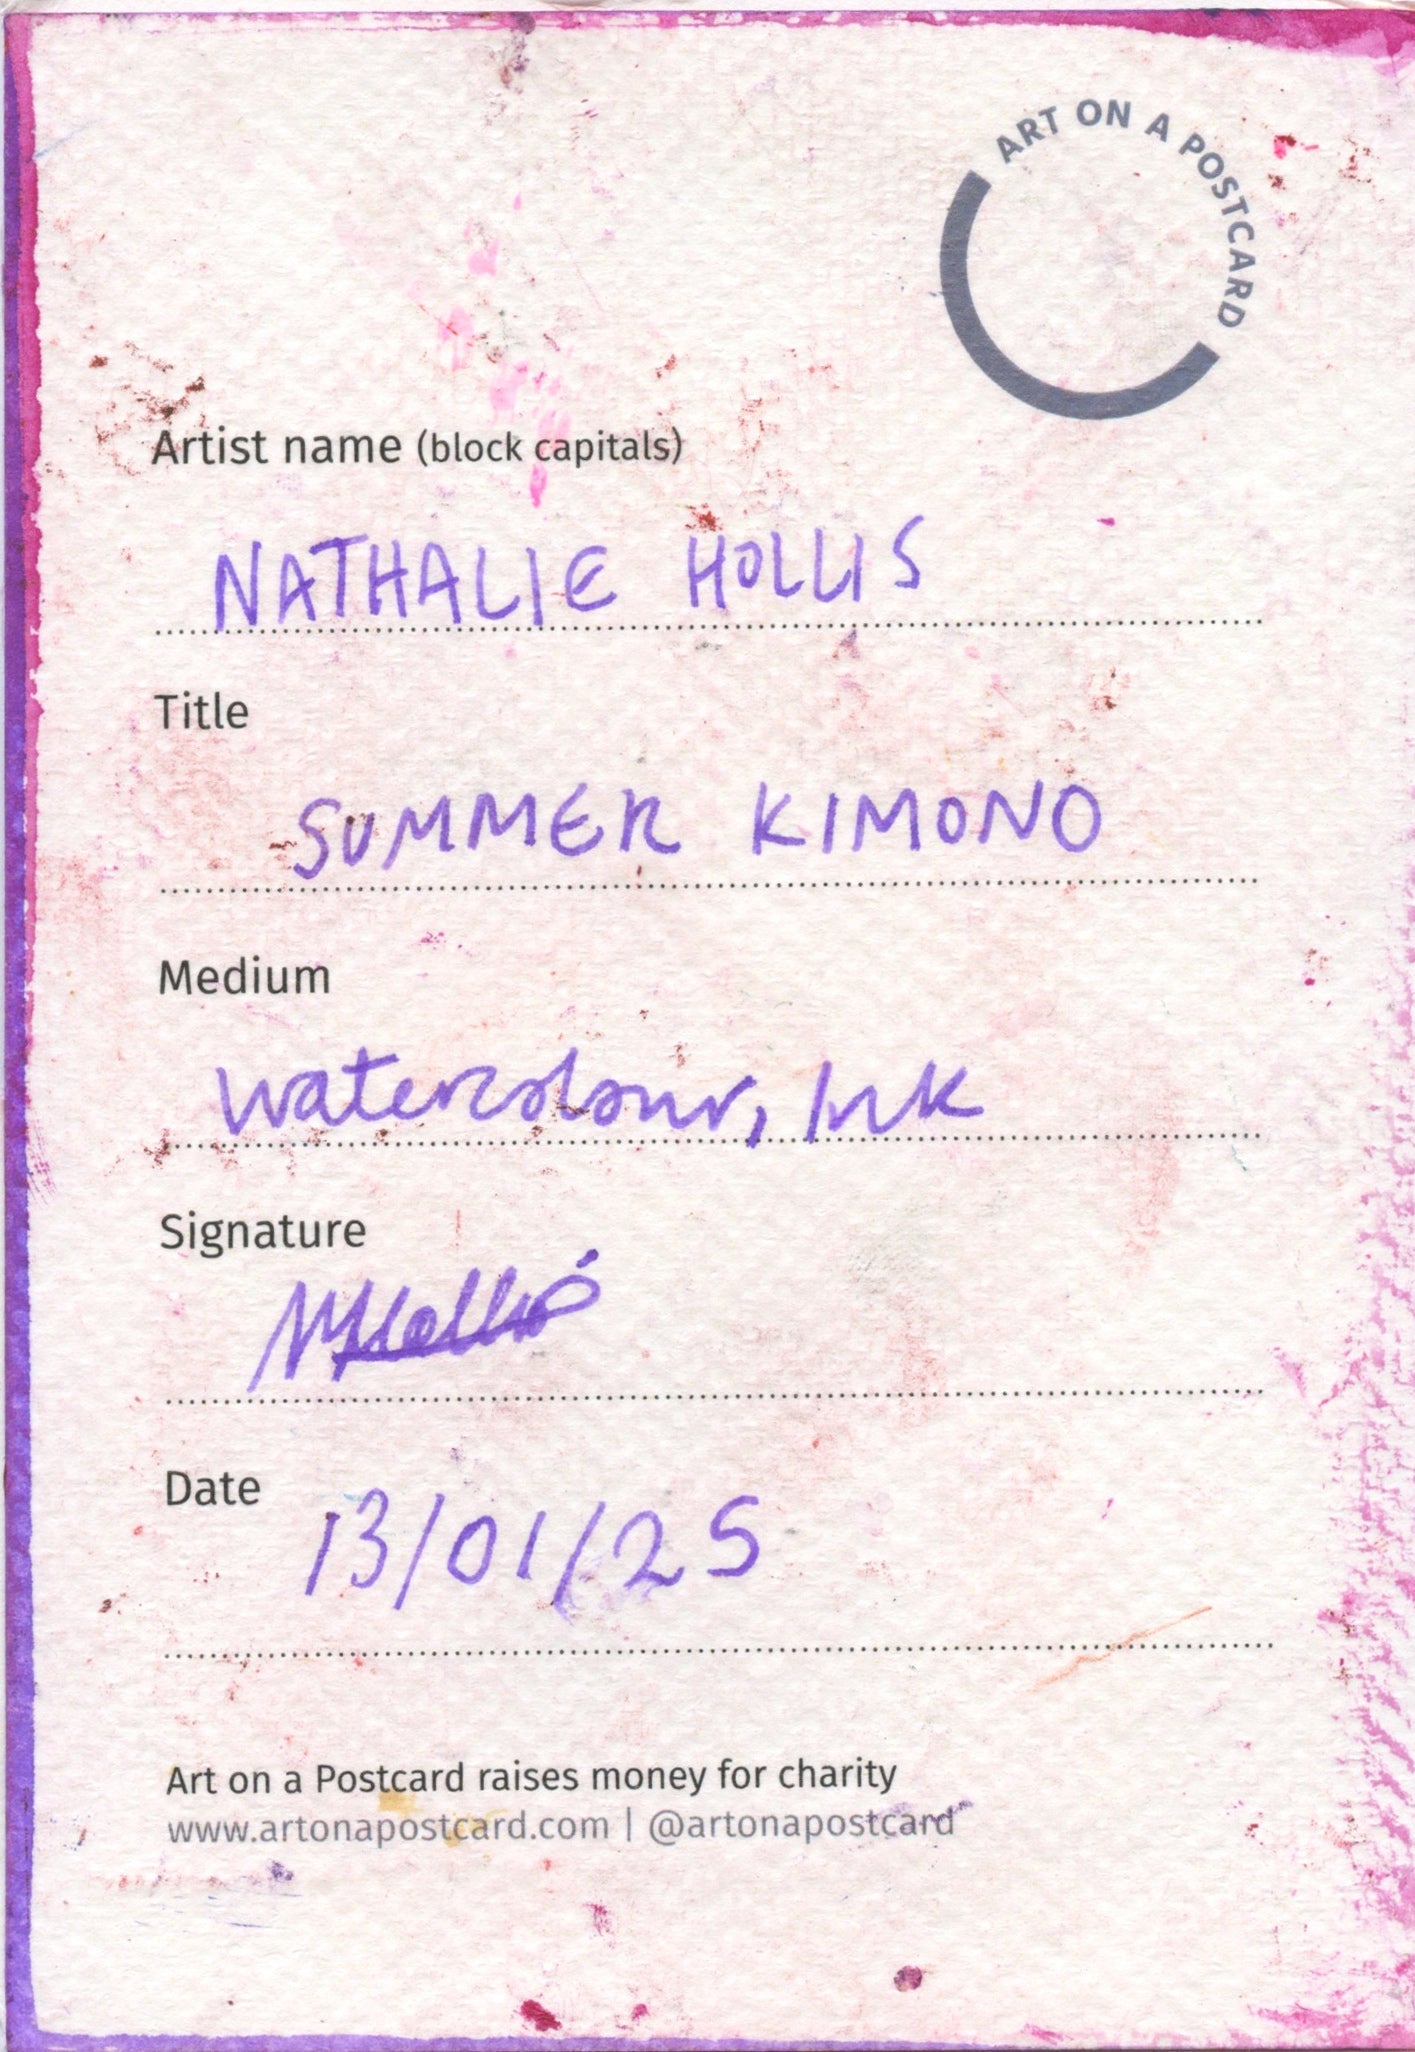 ART ON A POSTCARD
Artist name (block capitals)
NATHALIE HOLLIS
Title
SUMMER KIMONO
Medium
Watercolour, Ink
Signature
NHollis
Date
13/01/25
Art on a Postcard raises money for charity
www.artonapostcard.com | @artonapostcard